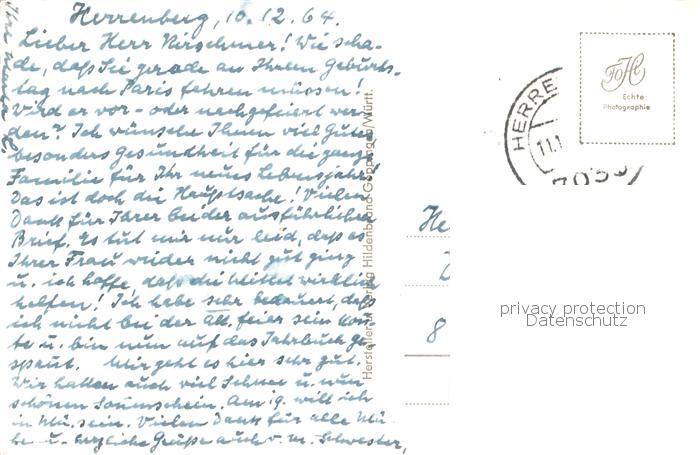 Herrenberg, 10.12.64.
Lieber Herr Kirschmer! Wie scha-
de, daß Sie gerade an Ihrem Geburts-
tag nach Paris fahren müssen!
Wird er vor- oder nachgefeiert wer-
den? Ich wünsche Ihnen viel Gutes
besonders Gesundheit für die ganze
Familie für Ihr neues Lebensjahr!
Das ist doch die Hauptsache! Vielen
Dank für Ihrer beider ausführlichen
Brief. Es tut mir nur leid, daß es
Ihrer Frau wieder nicht gut ging
u. ich hoffe, daß die Mittel wirklich
helfen! Ich habe sehr bedauert, daß
ich nicht bei der feier sein konn
te u. bin nun auf das Jahrbuch ge-
spannt. Mir geht es hier sehr gut.
Wir hatten auch viel Schnee u. nun
schönen Sonnenschein. Am 19. will ich
in Mü. sein. Vielen Dank für alle Mü-
he u. herzliche Grüße auch v. m. Schwester,
Ihre
Hersteller u. Verlag Hildenbrand Göppingen/Württ.
HERRE
11.1
7033
FoHi
Echte
Photographie
He
8
privacy protection
Datenschutz